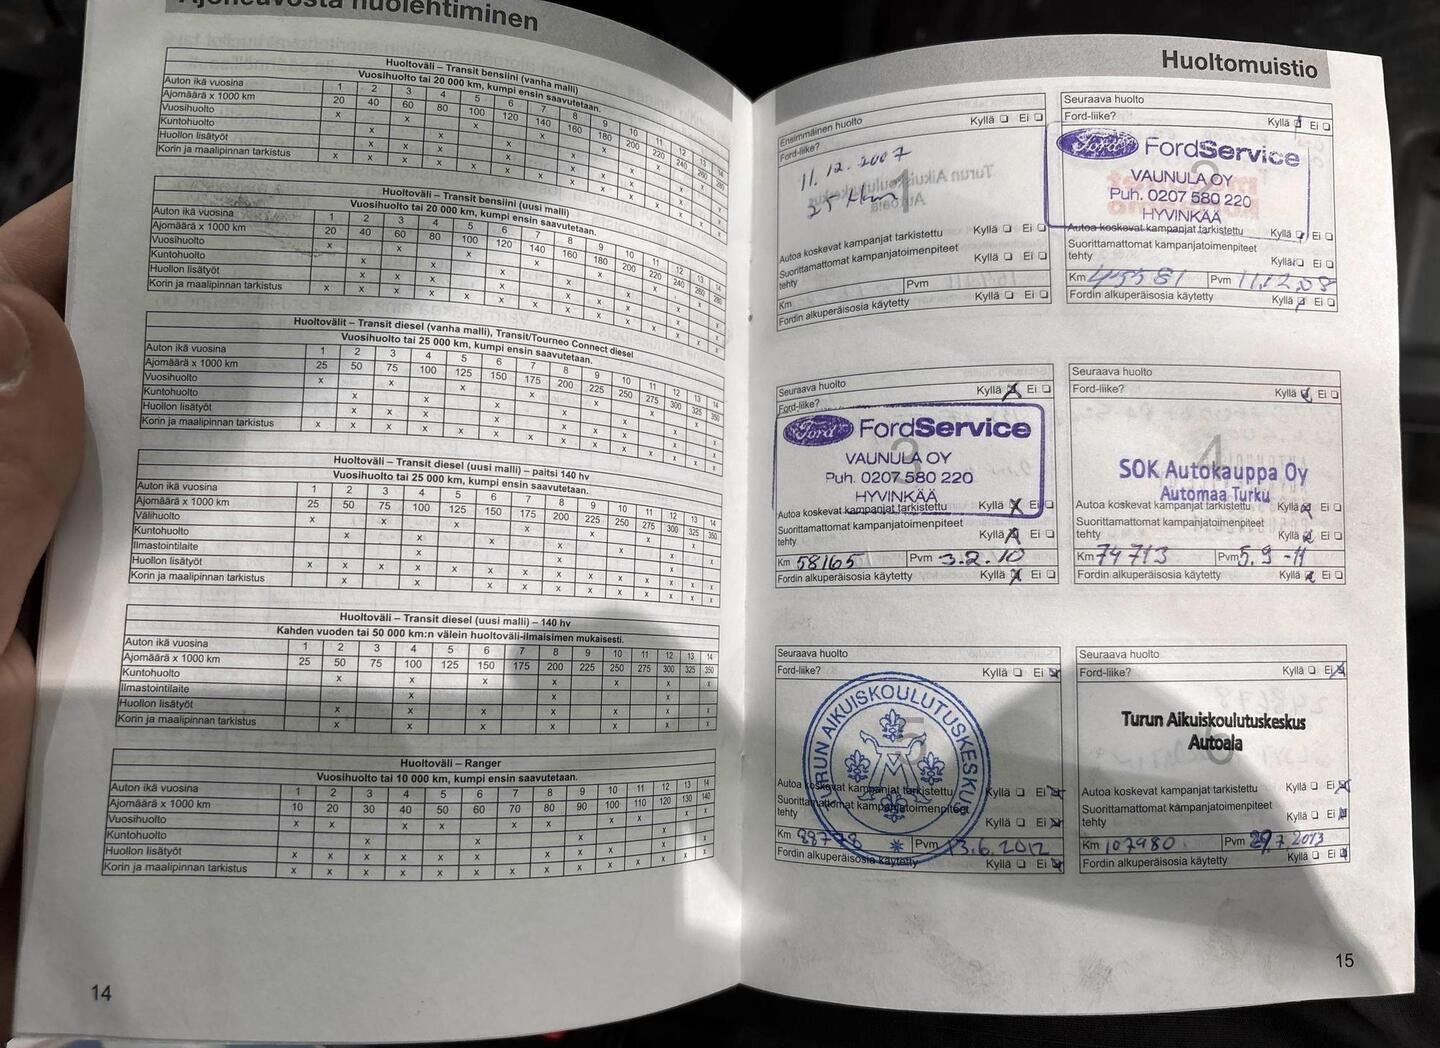 Ajoneuvosta huolehtiminen
Huoltoväli – Transit bensiini (vanha malli)
Vuosihuolto tai 20 000 km, kumpi ensin saavutetaan.
Auton ikä vuosina 1 2 3 4 5 6 7 8 9 10 11 12 13 14
Ajomäärä x 1000 km 20 40 60 80 100 120 140 160 180 200 220 240 260 280
Vuosihuolto
Kuntohuolto
Huollon lisätyöt
Korin ja maalipinnan tarkistus
Huoltoväli – Transit bensiini (uusi malli)
Vuosihuolto tai 20 000 km, kumpi ensin saavutetaan.
Auton ikä vuosina 1 2 3 4 5 6 7 8 9 10 11 12 13 14
Ajomäärä x 1000 km 20 40 60 80 100 120 140 160 180 200 220 240 260 280
Vuosihuolto
Kuntohuolto
Huollon lisätyöt
Korin ja maalipinnan tarkistus
Huoltovälit – Transit diesel (vanha malli), Transit/Tourneo Connect diesel
Vuosihuolto tai 25 000 km, kumpi ensin saavutetaan.
Auton ikä vuosina 1 2 3 4 5 6 7 8 9 10 11 12 13 14
Ajomäärä x 1000 km 25 50 75 100 125 150 175 200 225 250 275 300 325 350
Vuosihuolto
Kuntohuolto
Huollon lisätyöt
Korin ja maalipinnan tarkistus
Huoltoväli – Transit diesel (uusi malli) – paitsi 140 hv
Vuosihuolto tai 25 000 km, kumpi ensin saavutetaan.
Auton ikä vuosina 1 2 3 4 5 6 7 8 9 10 11 12 13 14
Ajomäärä x 1000 km 25 50 75 100 125 150 175 200 225 250 275 300 325 350
Välihuolto
Kuntohuolto
Ilmastointilaite
Huollon lisätyöt
Korin ja maalipinnan tarkistus
Huoltoväli – Transit diesel (uusi malli) – 140 hv
Kahden vuoden tai 50 000 km:n välein huoltoväli-ilmaisimen mukaisesti.
Auton ikä vuosina 1 2 3 4 5 6 7 8 9 10 11 12 13 14
Ajomäärä x 1000 km 25 50 75 100 125 150 175 200 225 250 275 300 325 350
Kuntohuolto
Ilmastointilaite
Huollon lisätyöt
Korin ja maalipinnan tarkistus
Huoltoväli – Ranger
Vuosihuolto tai 10 000 km, kumpi ensin saavutetaan.
Auton ikä vuosina 1 2 3 4 5 6 7 8 9 10 11 12 13 14
Ajomäärä x 1000 km 10 20 30 40 50 60 70 80 90 100 110 120 130 140
Vuosihuolto
Kuntohuolto
Huollon lisätyöt
Korin ja maalipinnan tarkistus
14
Huoltomuistio
Ensimmäinen huolto
Ford-liike? Kyllä Ei
11.12.2007
1
Autoa koskevat kampanjat tarkistettu Kyllä Ei
Suorittamattomat kampanjatoimenpiteet
tehty Kyllä Ei
Km Pvm
Fordin alkuperäisosia käytetty Kyllä Ei
Seuraava huolto
Ford-liike? Kyllä Ei
Ford FordService
VAUNULA OY
Puh. 0207 580 220
HYVINKÄÄ
Autoa koskevat kampanjat tarkistettu Kyllä Ei
Suorittamattomat kampanjatoimenpiteet
tehty Kyllä Ei
Km Pvm 11.12.08
Fordin alkuperäisosia käytetty Kyllä Ei
Seuraava huolto
Ford-liike? Kyllä Ei
3
Ford FordService
VAUNULA OY
Puh. 0207 580 220
HYVINKÄÄ
Autoa koskevat kampanjat tarkistettu Kyllä Ei
Suorittamattomat kampanjatoimenpiteet
tehty Kyllä Ei
Km 58165 Pvm 3.2.10
Fordin alkuperäisosia käytetty Kyllä Ei
Seuraava huolto
Ford-liike? Kyllä Ei
4
SOK Autokauppa Oy
Automaa Turku
Autoa koskevat kampanjat tarkistettu Kyllä Ei
Suorittamattomat kampanjatoimenpiteet
tehty Kyllä Ei
Km 74713 Pvm 5.9 -11
Fordin alkuperäisosia käytetty Kyllä Ei
Seuraava huolto
Ford-liike? Kyllä Ei
5
TURUN AIKUISKOULUTUSKESKUS
Autoa koskevat kampanjat tarkistettu Kyllä Ei
Suorittamattomat kampanjatoimenpiteet
tehty Kyllä Ei
Km 88778 Pvm 13.6.2012
Fordin alkuperäisosia käytetty Kyllä Ei
Seuraava huolto
Ford-liike? Kyllä Ei
6
Turun Aikuiskoulutuskeskus
Autoala
Autoa koskevat kampanjat tarkistettu Kyllä Ei
Suorittamattomat kampanjatoimenpiteet
tehty Kyllä Ei
Km 107980 Pvm 29.7.2013
Fordin alkuperäisosia käytetty Kyllä Ei
15